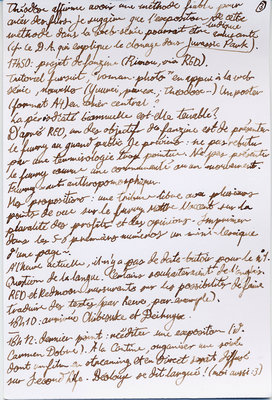 Thisdon affirme avoir une méthode fiable pour
des films. Je suggère que l'exposition de cette
méthode dans la web-série pourrait être amusante
ludique
(cf. le D.A. qui explique le clonage dans Jurassic Park).
17h50: projet de fanzine (Rimou, via RED).
Tutoriel fursuit, "roman-photo" en appui à la web
série, nouvelles (Yuumei, ...). Un poster
(format A4) en cahier central ?
La périodicité bimensuelle est-elle tenable ?
D'après RED, un des objectifs du fanzine est de présenter
le furry au grand public. Je préviens : ne pas rebuter
par une terminologie trop pointue. Ne pas présenter
le furry comme une communauté ou un mouvement.
Furry = anthropomorphique.
Mes propositions : une tribune libre avec plusieurs
points de vue sur le furry. Insister sur la
pluralité des profils et des opinions. Imprimer
dans les 5-6 premiers numéros un mini-lexique
d'une page.
A l'heure actuelle, il n'y a pas de date butoir pour le n°1.
Question de la langue. Certains souhaiteraient de l'anglais.
RED et Redmoon rassurants sur les possibilités de faire
traduire des textes (par par exemple).
18h10: arrivée et
18h12: dernier point: rééditer une exposition (cf.
Carmen Dobro). A la Cantine, organiser une soirée
dont un film en streaming et en direct serait diffusé
sur Second Life. se dit langues! (moi aussi :3)